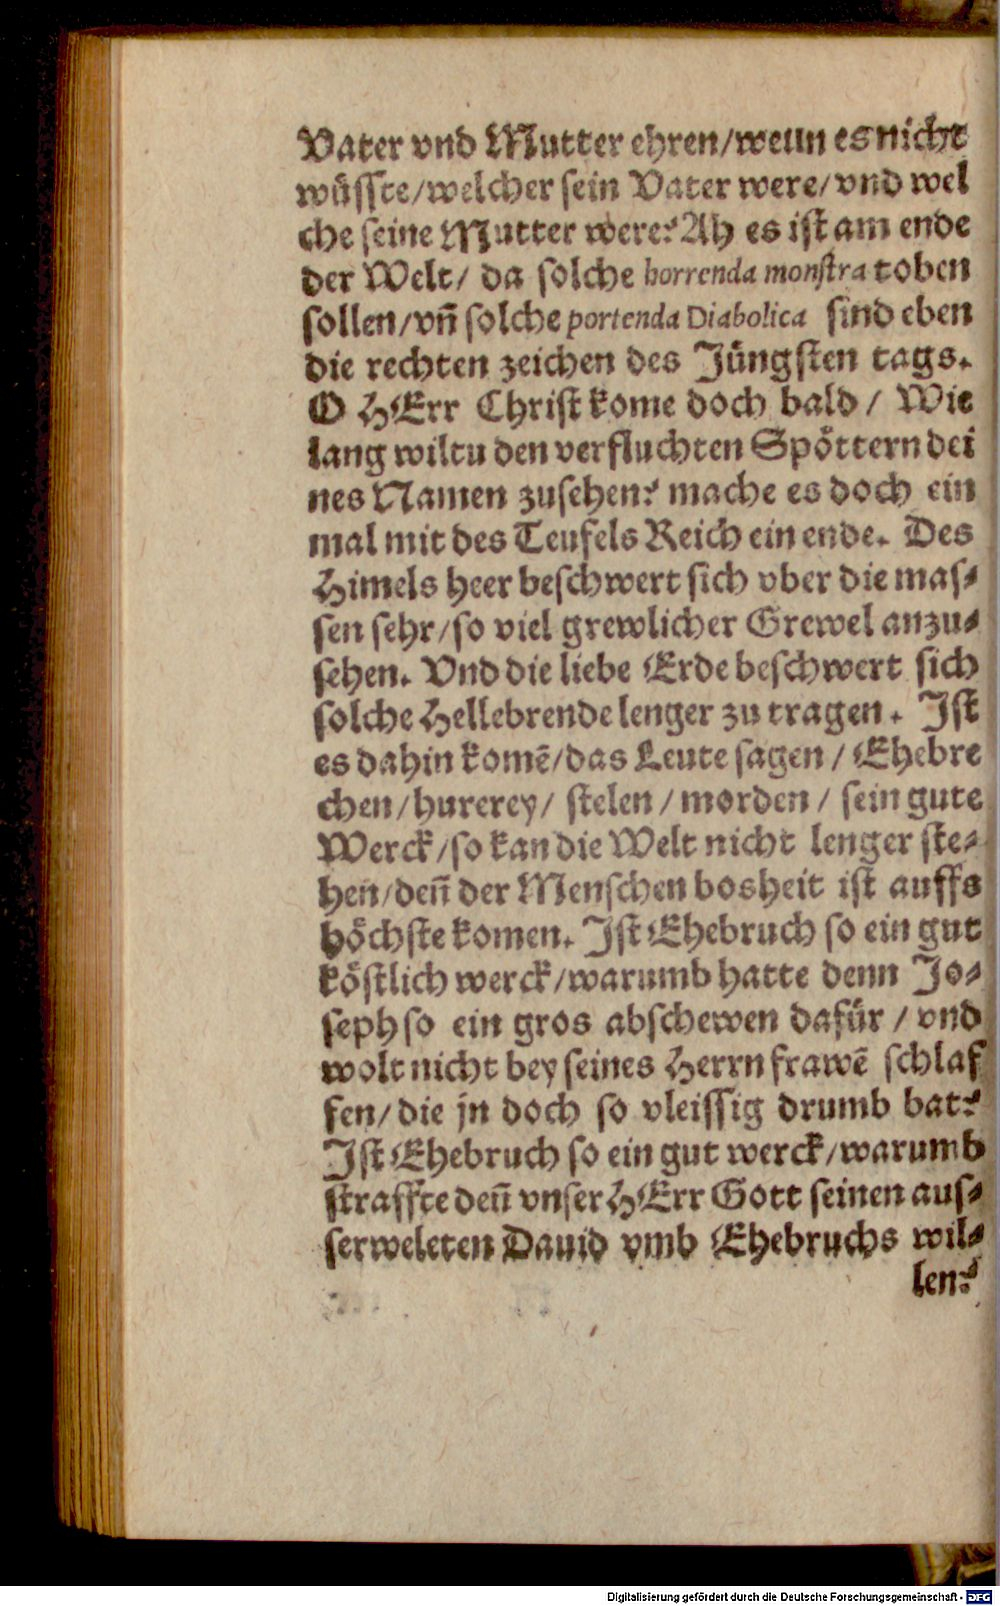 Vater vnd Mutter ehren/weun es nicht
wüsste/welcher sein Vater were/vnd wel
che seine Mutter were? Ah es ist am ende
der Welt/ da solche horrenda monstra toben
sollen/vñ solche portenda Diabolica sind eben
die rechten zeichen des Jüngsten tags.
O HErr Christ kome doch bald / Wie
lang wiltu den verfluchten Spöttern dei
nes Namen zusehen? mache es doch ein
mal mit des Teufels Reich ein ende. Des
Himels heer beschwert sich vber die mas-
sen sehr/so viel grewlicher Grewel anzu-
sehen. Vnd die liebe Erde beschwert sich
solche Hellebrende lenger zu tragen. Ist
es dahin komē/das Leute sagen / Ehebre
chen/hurerey/ stelen / morden / sein gute
Werck/so kan die Welt nicht lenger ste-
hen/deñ der Menschen bosheit ist auffs
höchste komen. Ist Ehebruch so ein gut
köstlich werck/warumb hatte denn Jo-
seph so ein gros abschewen dafür / vnd
wolt nicht bey seines Herrn frawē schlaf
fen/die jn doch so vleissig drumb bat?
Ist Ehebruch so ein gut werck/warumb
straffte deñ vnser HErr Gott seinen aus-
serweleten Dauid vmb Ehebruchs wil-
len?
Digitalisierung gefördert durch die Deutsche Forschungsgemeinschaft - DFG